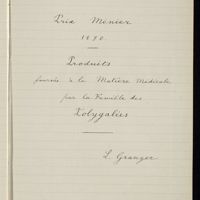 Prix Menier
1890.
Produits
fournis à la Matière Médicale
par la Famille des
Polygalées
L. Granger